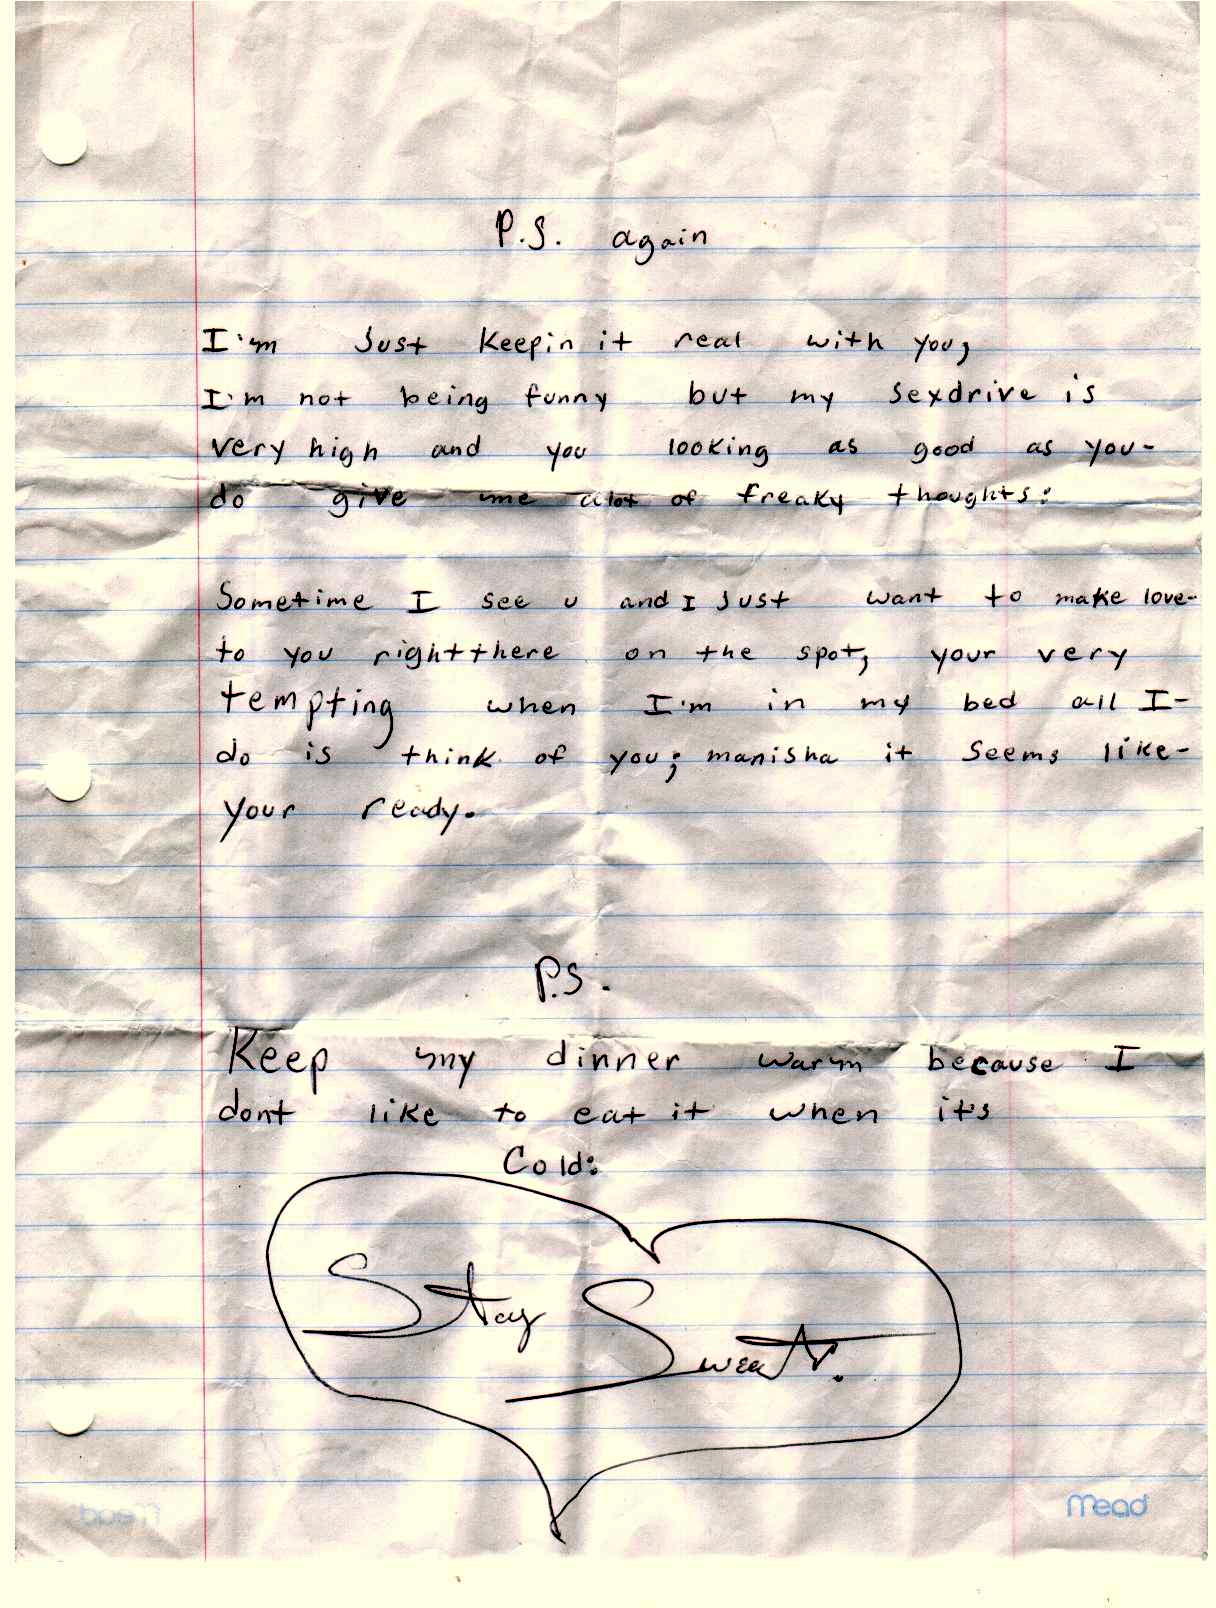 P.S. again
I'm Just Keepin it real with you,
I'm not being funny but my sexdrive is
very high and you looking as good as you-
do give me alot of freaky thoughts:
Sometime I see u and I Just want to make love-
to you rightthere on the spot, your very
tempting when I'm in my bed all I-
do is think of you; manisha it seems like-
your ready.
P.S.
Keep my dinner warm because I
dont like to eat it when it's
Cold:
Stay
Mead